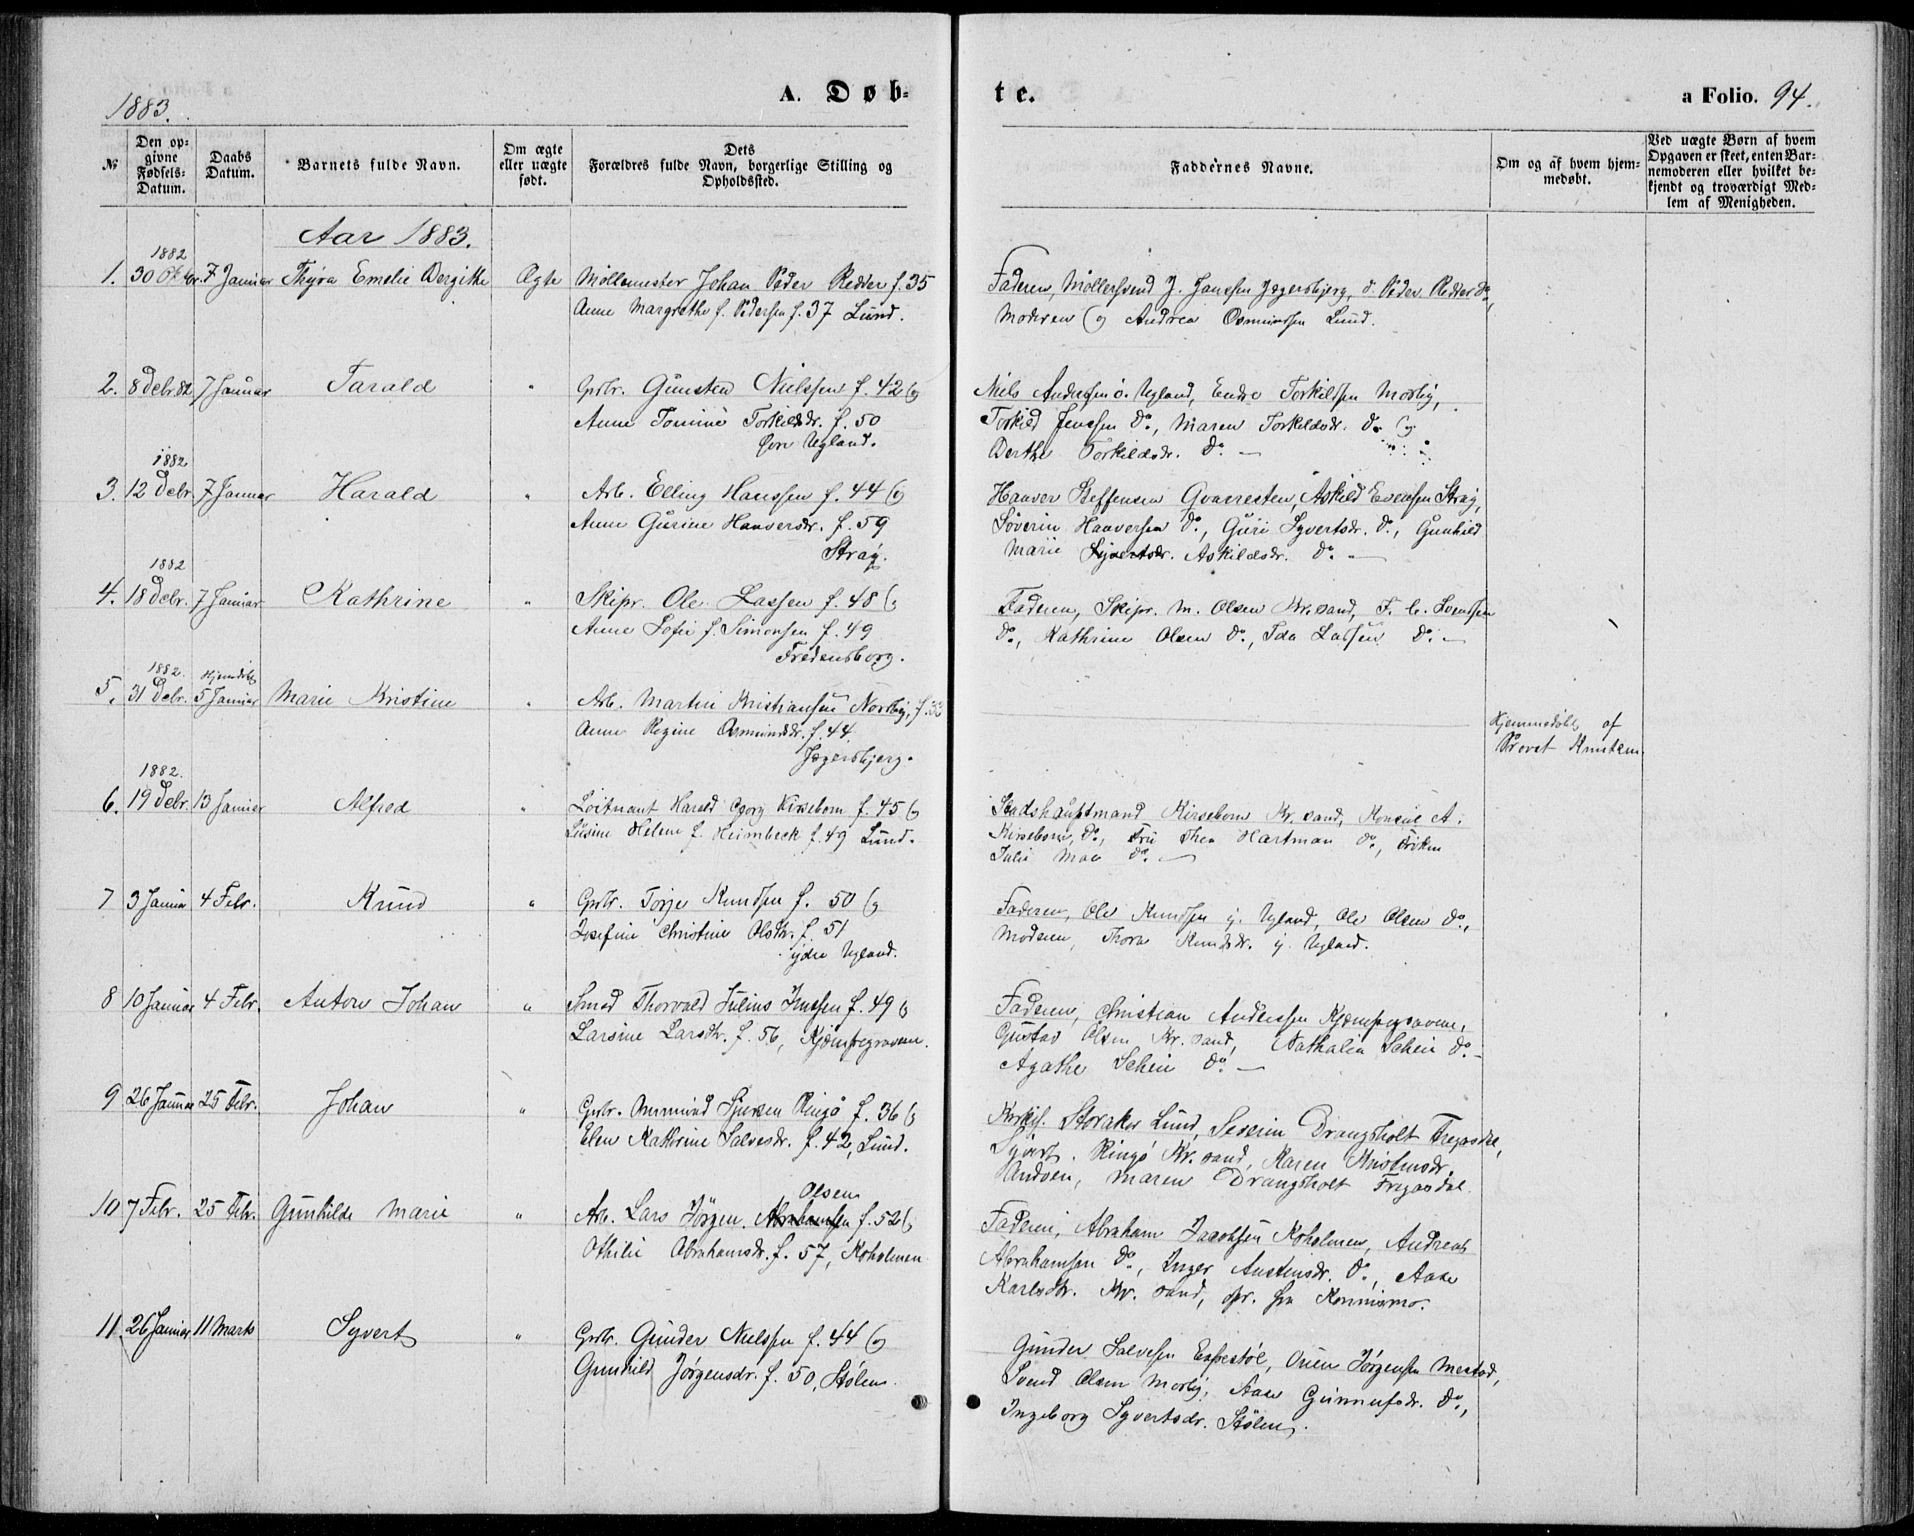 1883.
A. Døb-
te.
a Folio. 94.
№
Den op-
givne
Fødsels-
Datum.
Daabs
Datum.
Barnets fulde Navn.
Om ægte
eller uægte
født.
Dets
Forældres fulde Navn, borgerlige Stilling og
Opholdssted.
Faddernes Navne.
Om og af hvem hjem-
medøbt.
Ved uægte Børn af hvem
Opgaven er skeet, enten Bar-
nemoderen eller hvilket be-
kjendt og troværdigt Med-
lem af Menigheden.
Aar 1883.
1882
1. 30 Oktbr. 7 Januar Thyra Emelie Bergithe Ægte Møllemester Johan Peder Redder f. 35
Anne Margrethe f. Pedersen f. 37 Lund.
Faderen, Møllersvend J. Janssen Jægersbjerg, d. Peder Redder do,
Moderen og Andrea Osmundsen Lund.
2. 8 Debr 82 7 Januar Tarald " Grbr. Gunsten Nielssen f. 42 og
Anne Tomine Torkildsdr. f. 50
Øvre Ugland.
Niels Anderssen ö. Ugland, Endre Torkildssen Mosby,
Torkild Jenssen do., Maren Torkildsdr. do. og
Berthe Torkildsdr. do. —
1882
3. 12 Debr 7 Januar Harald " Arb. Elling Hanssen f. 44 og
Anne Gurine Haaversdr. f. 59
Strag.
Haaver Steffensen Qvarresten, Askild Evensen Straj,
Søverin Haaversen do., Guri Syvertsdr. do., Gunhild
Marie Syvertsdr. Askildsdr. do. —
1882
4. 18 Debr. 7 Januar Kathrine " Skipr. Ole Lassen f. 48 og
Anne Sofie f. Simonsen f. 49
Fredensborg.
Faderen, Skipr. M. Olsen Kr.sand, F. C. Svendsen
do., Kathrine Olsen do., Ida Lassen do. —
1882. Hjemdøbt
5. 31 Debr. 5 Januar Marie Kristine " Arb. Martin Kristiansen Nordby, f. 33
Anne Regine Osmundsdr. f. 44.
Jægersbjerg.
Hjemmedøbt af
Provst Knutzen
1882.
6. 19 Debr. 13 Januar Alfred " Løitnant Harald Georg Kirsebom f. 45 og
Lusine Helene f. Heimbeck f. 49 Lund.
Stadshauptmand Kirsebom Kr.sand, Konsul A.
Kirsebom, do., Fru Thea Hartman do., Frøken
Julie Moe do. —
7 3 Januar 4 Febr. Knud " Grbr. Torje Knudsen f. 50 og
Josefine Christine Olsdtr. f. 51
ydre Ugland.
Faderen, Ole Knudsen y. Ugland, Ole Olsen do.,
Moderen, Thora Knudsdr. y. Ugland.
8 10 Januar 4 Febr. Anton Johan " Smed Thorvald Julius Jenssen f. 49 og
Larsine Larsdtr. f. 56, Kjæmpegraven.
Faderen, Christian Anderssen Kjæmpegraven,
Gustav Olsen Kr.sand, Nathalia Schei do.
Agathe Schei do. —
9 26 Januar 25 Febr. Johan " Grbr. Ommund Sjursen Ringø f. 36 og
Elen Kathrine Salvesdr. f. 42, Lund.
Kirkesj. Storaker Lund, Severin Drangsholt Tregasdal,
Syvert. Ringø Kr.sand, Karen Kristensdr.
Andøen, Maren Drangsholt Fregasdal.
Olsen
10 7 Febr. 25 Febr. Gunhilde Marie " Arb. Lars Jørgen Abrahamsen f. 52 og
Othilie Abrahamsdr. f. 57, Koholmen
Faderen, Abraham Jacobsen Koholmen, Andreas
Abrahamsen do., Inger Austensdr. do., Aase
Karlsdtr. Kr.sand, opr. fra Konnismo.
11. 26 Januar 11 Marts Syvert " Grbr. Gunder Nielssen f. 44 og
Gunhild Jørgensdr. f. 50, Stølen.
Gunder Salvesen Espestøl, Orien Jørgensen Mestad,
Svend Olsen Mosby, Aase Gunnufsdr. do.,
Ingeborg Syvertsdr. Stølen.